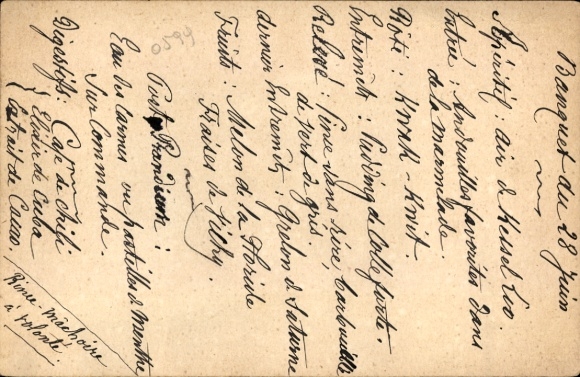 Banquet du 28 Juin
Apéritif : air de Kessel Loo.
Entrée : Andouilles favorites dans
de la marmelade.
Rôti : Knack-Knit.
Entremêt : Pudding de colle forte.
Relevé : Pince dans rêve, barbouillée
de vert de gris.
dernier Entremêt : Grelon de Saturne
Fruits : Melon de la Floride
Fraises de Gilly.
Post Prandium :
Eau des carmes ou pastilles de Menthe
Sur Commande.
Digestifs : Café de Chili
Elixir de Cuba
Extrait de Cacao.
Rince-machoire
à volonté.
0599